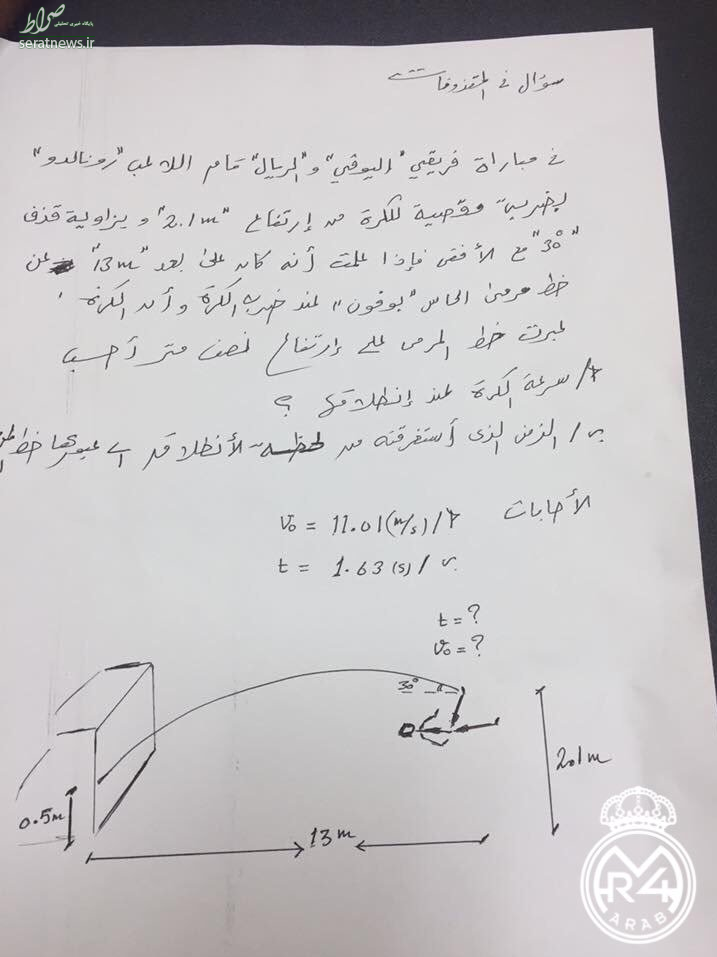 صراط
پایگاه خبری تحلیلی
seratnews.ir
سؤال في المقذوفات
في مباراة فريقي "اليوفي" و"الريال" قام اللاعب "رونالدو"
بضربة مقصية للكرة من إرتفاع "2.1m" و بزاوية قذف
"30°" مع الأفق فإذا علمت أنه كان على بعد "13m" عن
خط مرمى الحارس "بوفون" عند ضربه الكرة وأن الكرة
عبرت خط المرمى على إرتفاع نصف متر أحسب
أ/ سرعة الكرة عند إنطلاقها ؟
ب/ الزمن الذي أستغرقته من لحظة الأنطلاق عبورها خط
الأجابات
أ/ V₀ = 11.01 (m/s)
ب/ t = 1.63 (s)
t = ?
V₀ = ?
30°
2.1m
0.5m
13m
RM4
ARAB